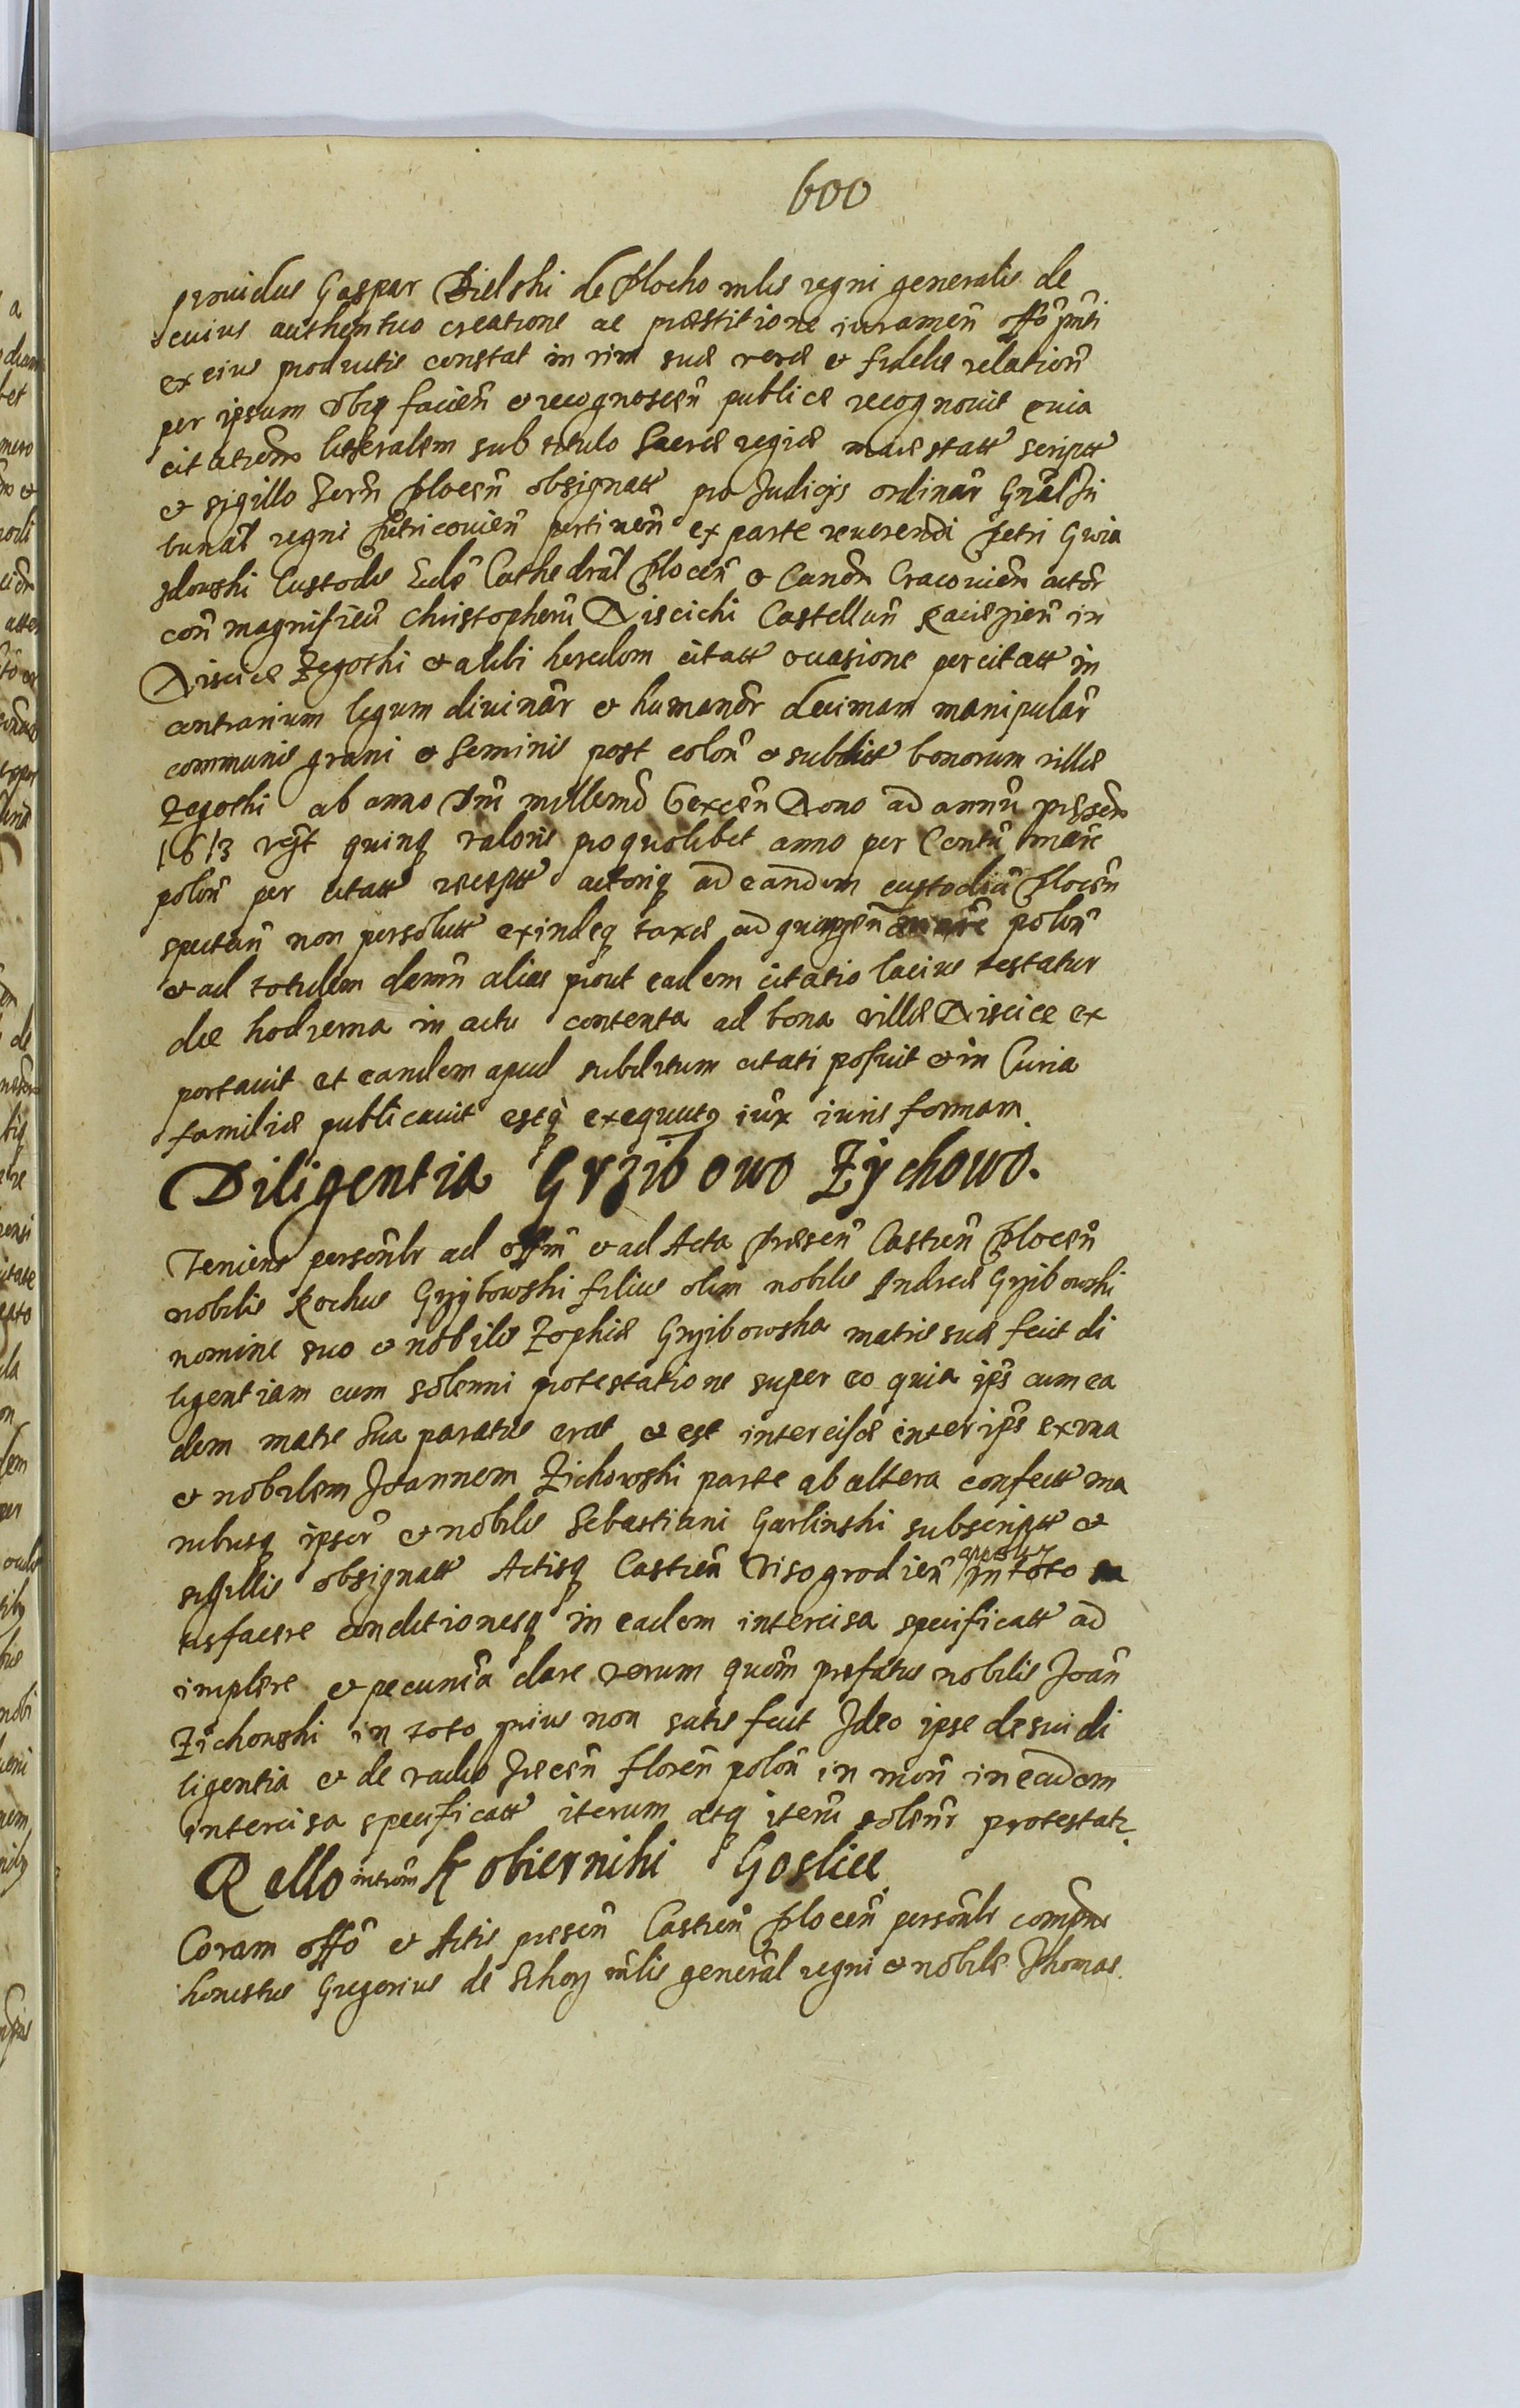 600
providus Gaspar Bielski de Plocko mlis regni generalis de
cuius authentico creatione ac præstitione iuramen̄ offō pn̄ti
ex eius productis constat in vim suæ veræ et fidelis relation̄
per ipsum obiq facien̄ et recognoscen̄ publice recognovit quia
citation̄ literalem sub titulo Sacræ regiæ maiestatt scriptt
et sigillo Terrn̄ Plocen̄ obsignatt pro Judicijs ordinar̄ Gnāl Tri
bunāl regni Petricovien̄ pertinen̄ ex parte reverendi Petri Gwia
zdowski Custodis Eclē Cathedrāl Plocen̄ et Canon̄ Cracovien̄ actōr
con̄ magnificū Christopherū Niscicki Castellan̄ Raciążien̄ in
Niscice Zegotki et alibi heredem citatt occasione per citatt in
contrarium legum divinar̄ et humanōr decimam manipulār̄
communis grani et seminis post colon̄ et subditt bonorum villæ
Zegotki ab anno Dn̄i millemō sexcen̄ Nono ad annū præsen̄
1613 vēst quinq valoris pro quolibet anno per Centū marc̄
polon̄ per citatt receptt actoriq ad eandem custodiā Plocen̄
spectan̄ non persolutt exindeq taxæ ad quingen̄ marc̄ polon̄
et ad totidem damn̄ alias prout eadem citatio lacius testatur
die hodierna in actu contenta ad bona villæ Niscice ex
portavit et eandem apud subditum citati posuit et in Curia
familiæ publicavit estq exequuto iux̄ iuris formam.
Diligentia Grzibowo Zychowo.
Veniens personlr ad offm̄ et ad Acta Præsen̄ Castren̄ Plocen̄
nobilis Rochus Grzybowski filius olim nobilis Andreæ Grzibowski
nomine suo et nobilis Zophiæ Grzibowska matris suæ fecit di
ligentiam cum solenni protestatione super eo quia ips̄ cum ea
dem matre sua paratus erat et est intercisæ inter ips̄ ex una
et nobilem Joannem Zichowski parte ab altera confectt ma
nibusq ipsor̄ et nobilis Sebastiani Garlinski subscriptt et
sigillis obsignatt Actisq Castren̄ Visogrodien̄ in toto sa
tisfacere conditionesq in eadem intercisa specificatt ad
implere et pecuniā dare verum quōm prefatus nobilis Joan̄
Zichowski in toto prius non satisfecit Ideo ipse de sui di
ligentia et de vadio Trecen̄ floren̄ polon̄ in mon̄ in eadem
intercisa specificatt iterum atq iterū solenr̄ protestatr.
Rello introm̄ Kobierniki Goslice
Coram offō et Actis presen̄ Castren̄ Plocen̄ personlr comprns
honestus Gregorius de mlis generāl regni et nobils Thomas